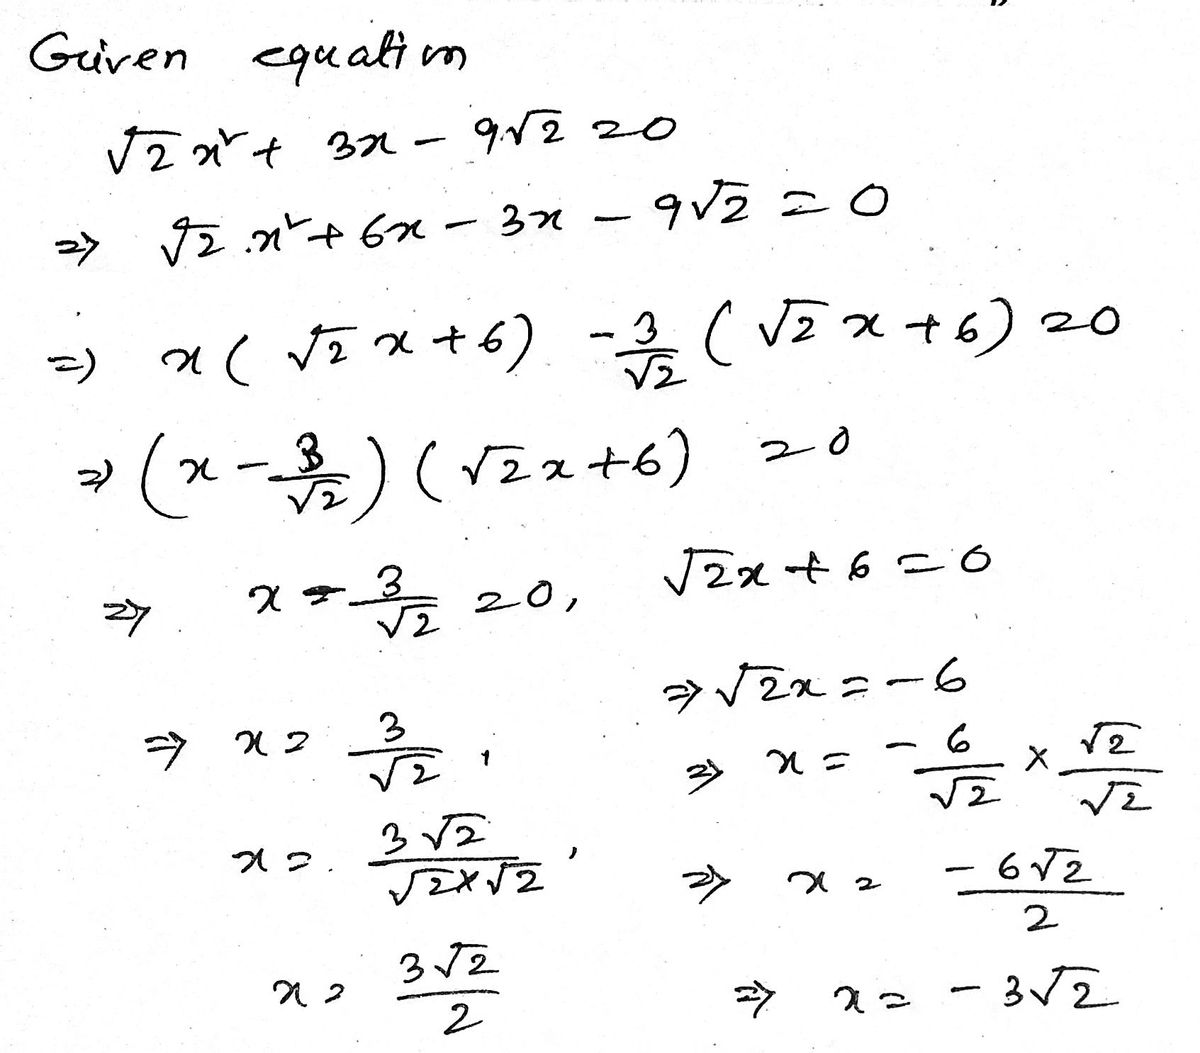 Given equation
√2 x² + 3x - 9√2 = 0
=> √2 . x² + 6x - 3x - 9√2 = 0
=> x ( √2 x + 6) - 3/√2 ( √2 x + 6) = 0
=> (x - 3/√2) ( √2 x + 6) = 0
=> x - 3/√2 = 0, √2x + 6 = 0
=> √2x = -6
=> x = 3/√2 , => x = - 6/√2 × √2/√2
x = 3√2/√2×√2 , => x = -6√2/2
x = 3√2/2 => x = -3√2